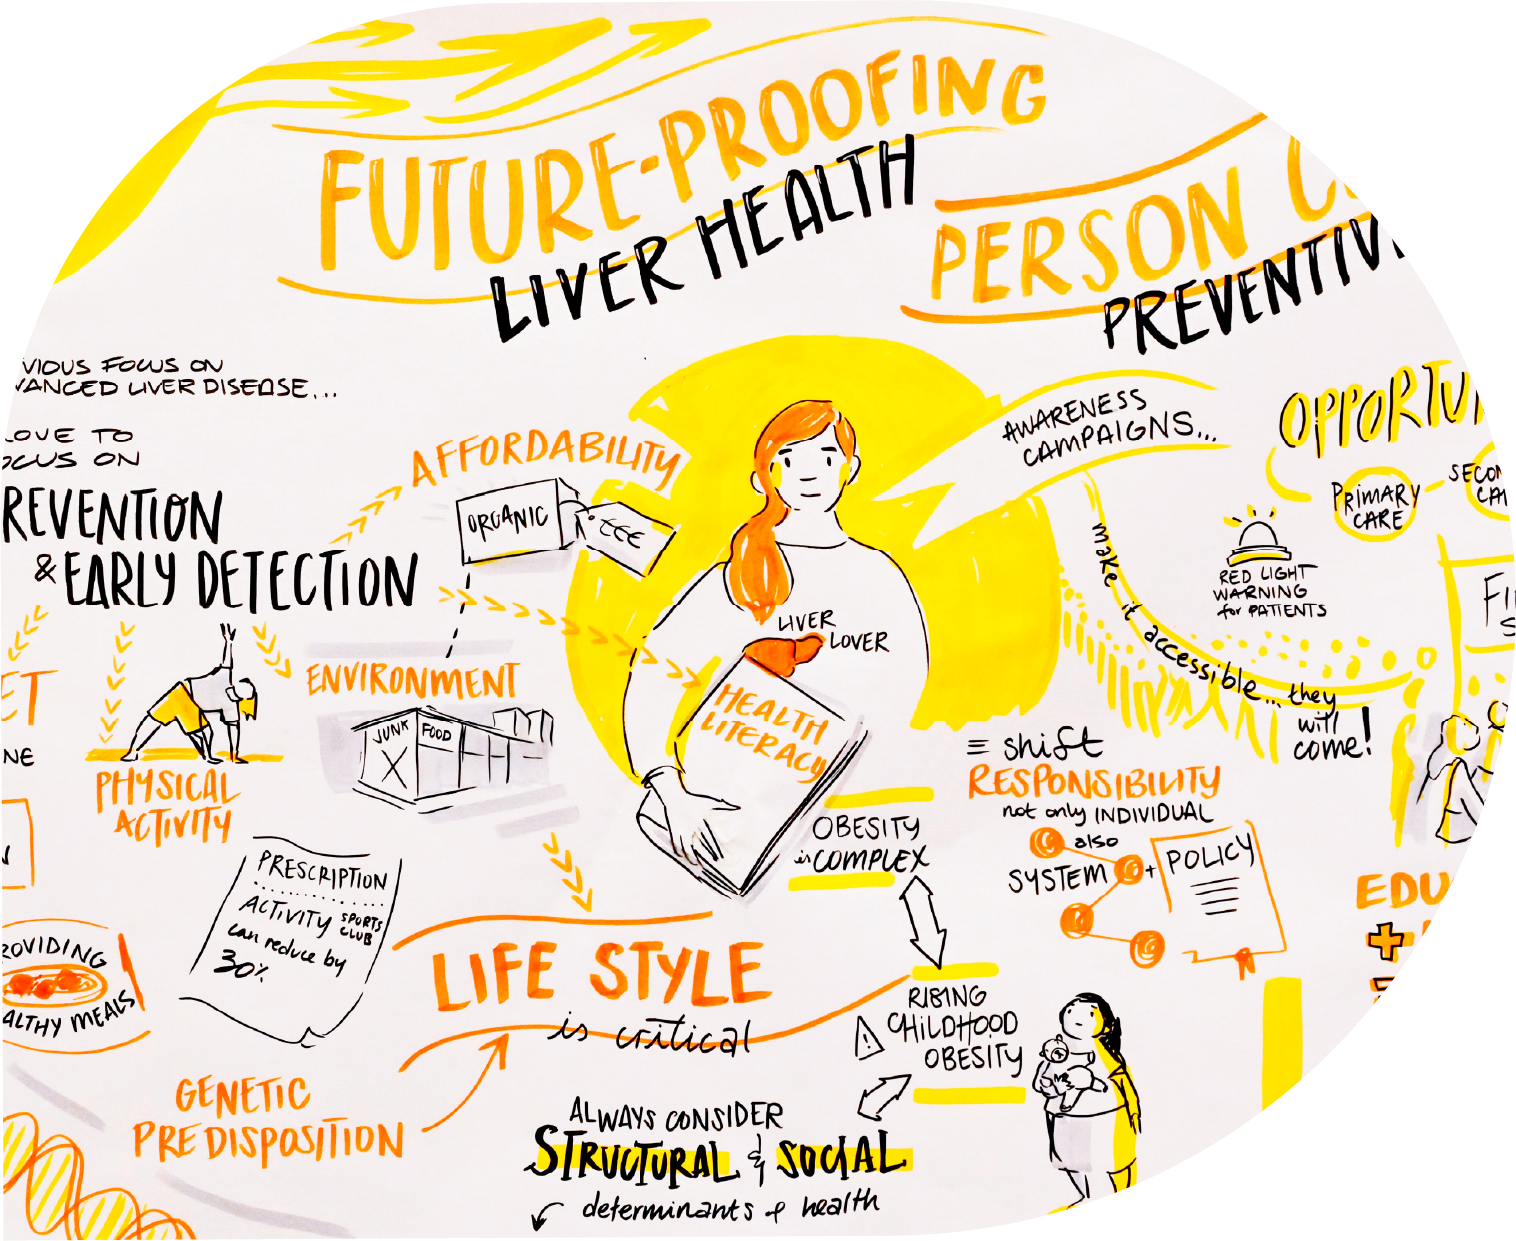 FUTURE-PROOFING
LIVER HEALTH
PERSON C
PREVENTIV
VIOUS FOCUS ON
VANCED LIVER DISEASE...
LOVE TO
OCUS ON
REVENTION
& EARLY DETECTION
AFFORDABILITY
ORGANIC
€€€
ENVIRONMENT
JUNK FOOD
PHYSICAL
ACTIVITY
ET
NE
N
PRESCRIPTION
ACTIVITY SPORTS CLUB
can reduce by
30%
ROVIDING
ALTHY MEALS
LIFE STYLE
is critical
GENETIC
PREDISPOSITION
LIVER
LOVER
HEALTH
LITERACY
OBESITY
is COMPLEX
RISING
CHILDHOOD
OBESITY
ALWAYS CONSIDER
STRUCTURAL & SOCIAL
determinants of health
AWARENESS
CAMPAIGNS...
make it accessible... they
will
come!
shift
RESPONSIBILITY
not only INDIVIDUAL
also
SYSTEM + POLICY
OPPORTU
PRIMARY
CARE
SECON
CA
RED LIGHT
WARNING
for PATIENTS
FI
S
EDU
+